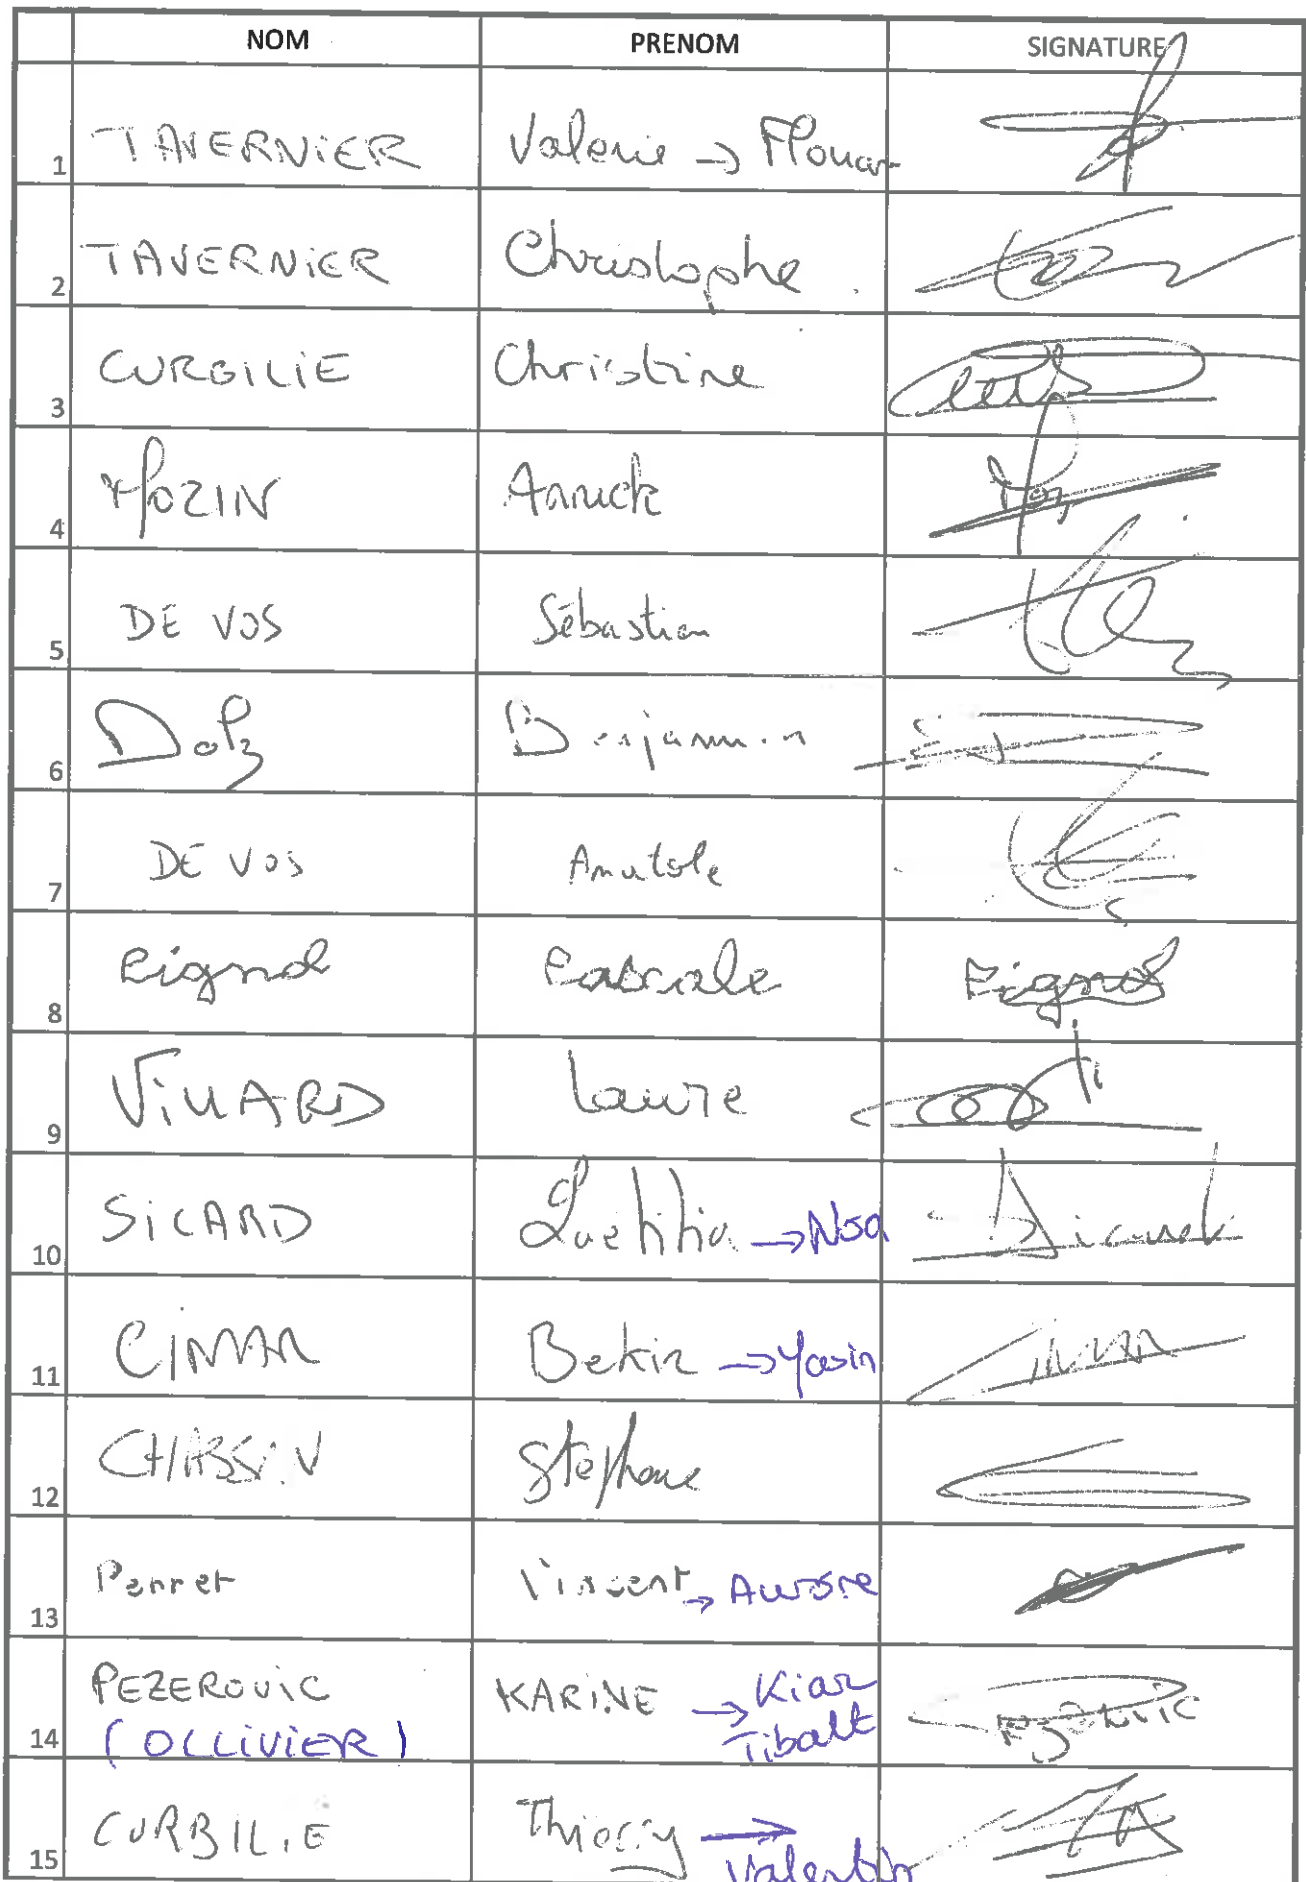 NOM PRENOM SIGNATURE
1 TAVERNIER Valerie →
2 TAVERNIER Christophe
3 CURBILIE Christine
4 MOZIN Annick
5 DE VOS Sébastien
6 Dolz Benjamin
7 DE VOS Anatole
8 Pignol Pascale Pignol
9 ViLLARD Laure
10 SiCARD Laetitia → Noa Sicard
11 CINAR Bekir → Yasin
12 CHASSIN Stephane
13 Perret Vincent → Aurore
14 PEZEROViC KARiNE → Kian
(OLLiViER) Tibalt
15 CURBILIE Thierry →
Valentin